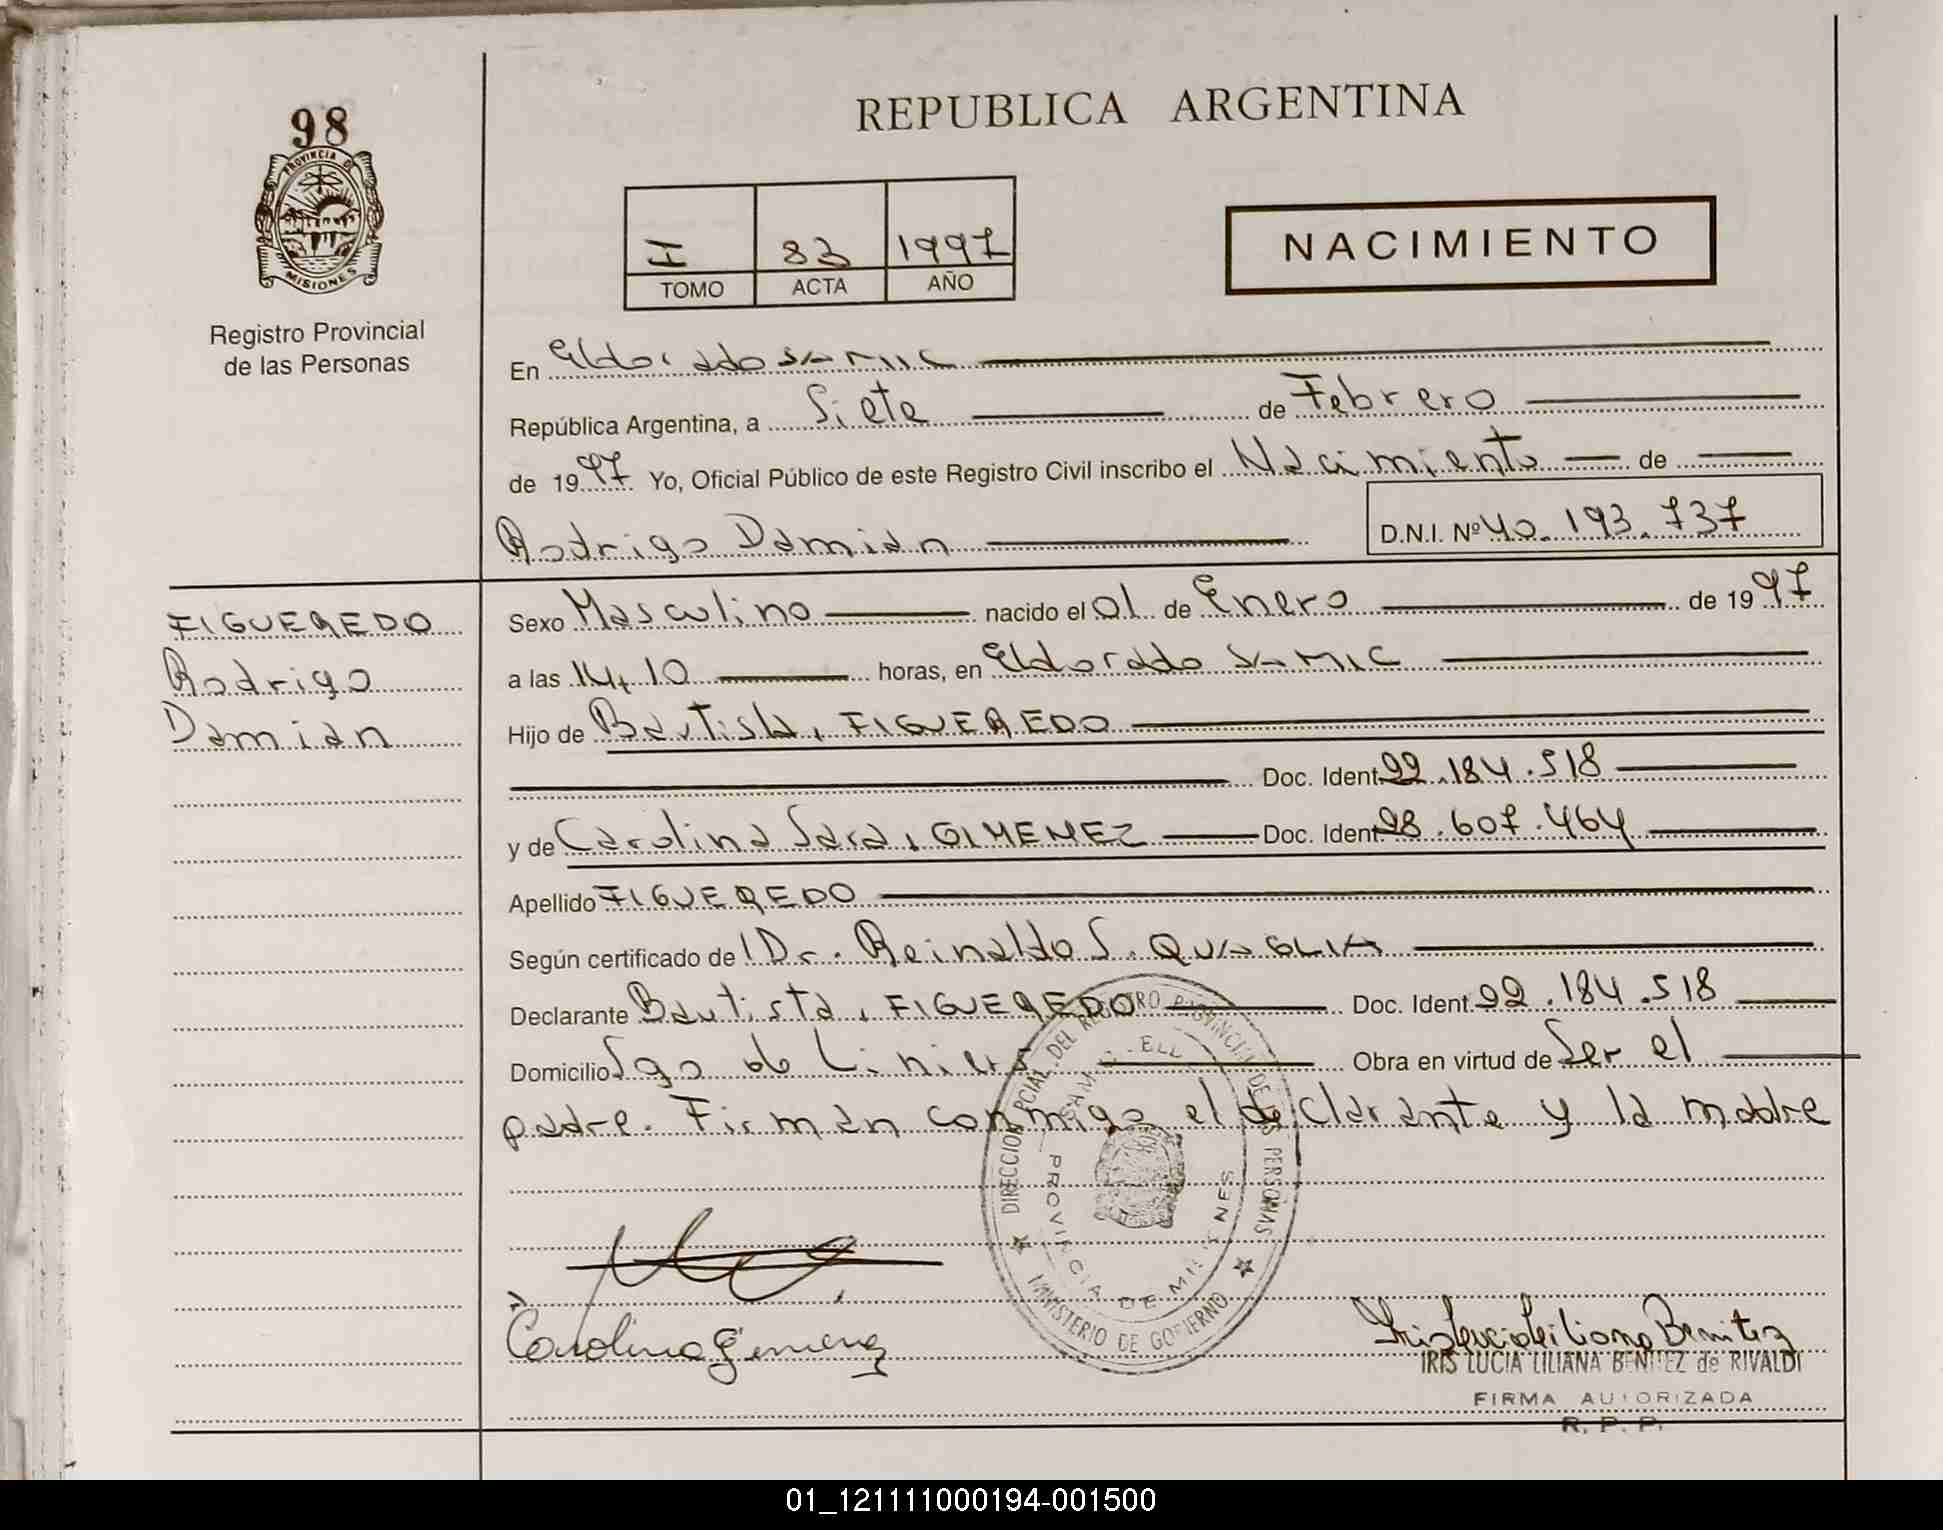 98
PROVINCIA DE
MISIONES
Registro Provincial
de las Personas
REPUBLICA ARGENTINA
I 83 1997
TOMO ACTA AÑO
NACIMIENTO
En Eldorado SAMIC
República Argentina, a Siete de Febrero
de 1997 Yo, Oficial Público de este Registro Civil inscribo el Nacimiento de
Rodrigo Damian D.N.I. Nº 40.193.737
FIGUEREDO
Rodrigo
Damian
Sexo Masculino nacido el 01 de Enero de 1997
a las 14,10 horas, en Eldorado SAMIC
Hijo de Bautista, FIGUEREDO
Doc. Ident. 22.184.518
y de Carolina Sara, GIMENEZ Doc. Ident. 28.607.464
Apellido FIGUEREDO
Según certificado de Dr. Reinaldo S. QUAGLIA
Declarante Bautista, FIGUEREDO Doc. Ident. 22.184.518
Domicilio Sgo de Liniers Obra en virtud de Ser el
padre. Firman conmigo el declarante y la madre
DIRECCION PCIAL. DEL REGISTRO PROVINCIAL DE LAS PERSONAS
PROVINCIA DE MISIONES
MINISTERIO DE GOBIERNO
Carolina Gimenez
Iris Lucia Liliana Benitez
IRIS LUCIA LILIANA BENITEZ de RIVALDI
FIRMA AUTORIZADA
R. P. P.
01_121111000194-001500